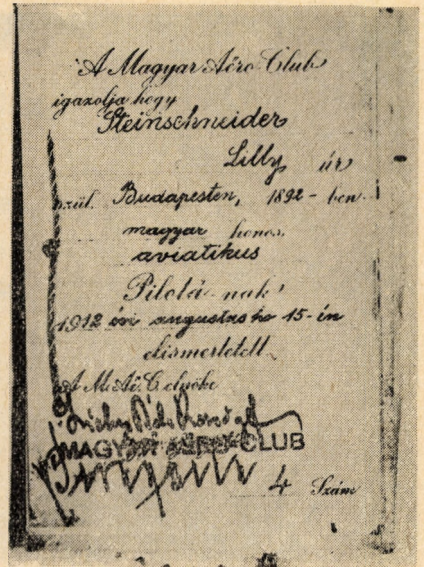 A Magyar Aëro Club
igazolja hogy
Steinschneider
Lilly úr
szül. Budapesten, 1892-ben
magyar honos
aviatikus
Pilotá-nak
1912 évi augustus hó 15-én
elismertetett
A M. Aë. C. elnöke
MAGYAR AERO CLUB
4 Szám